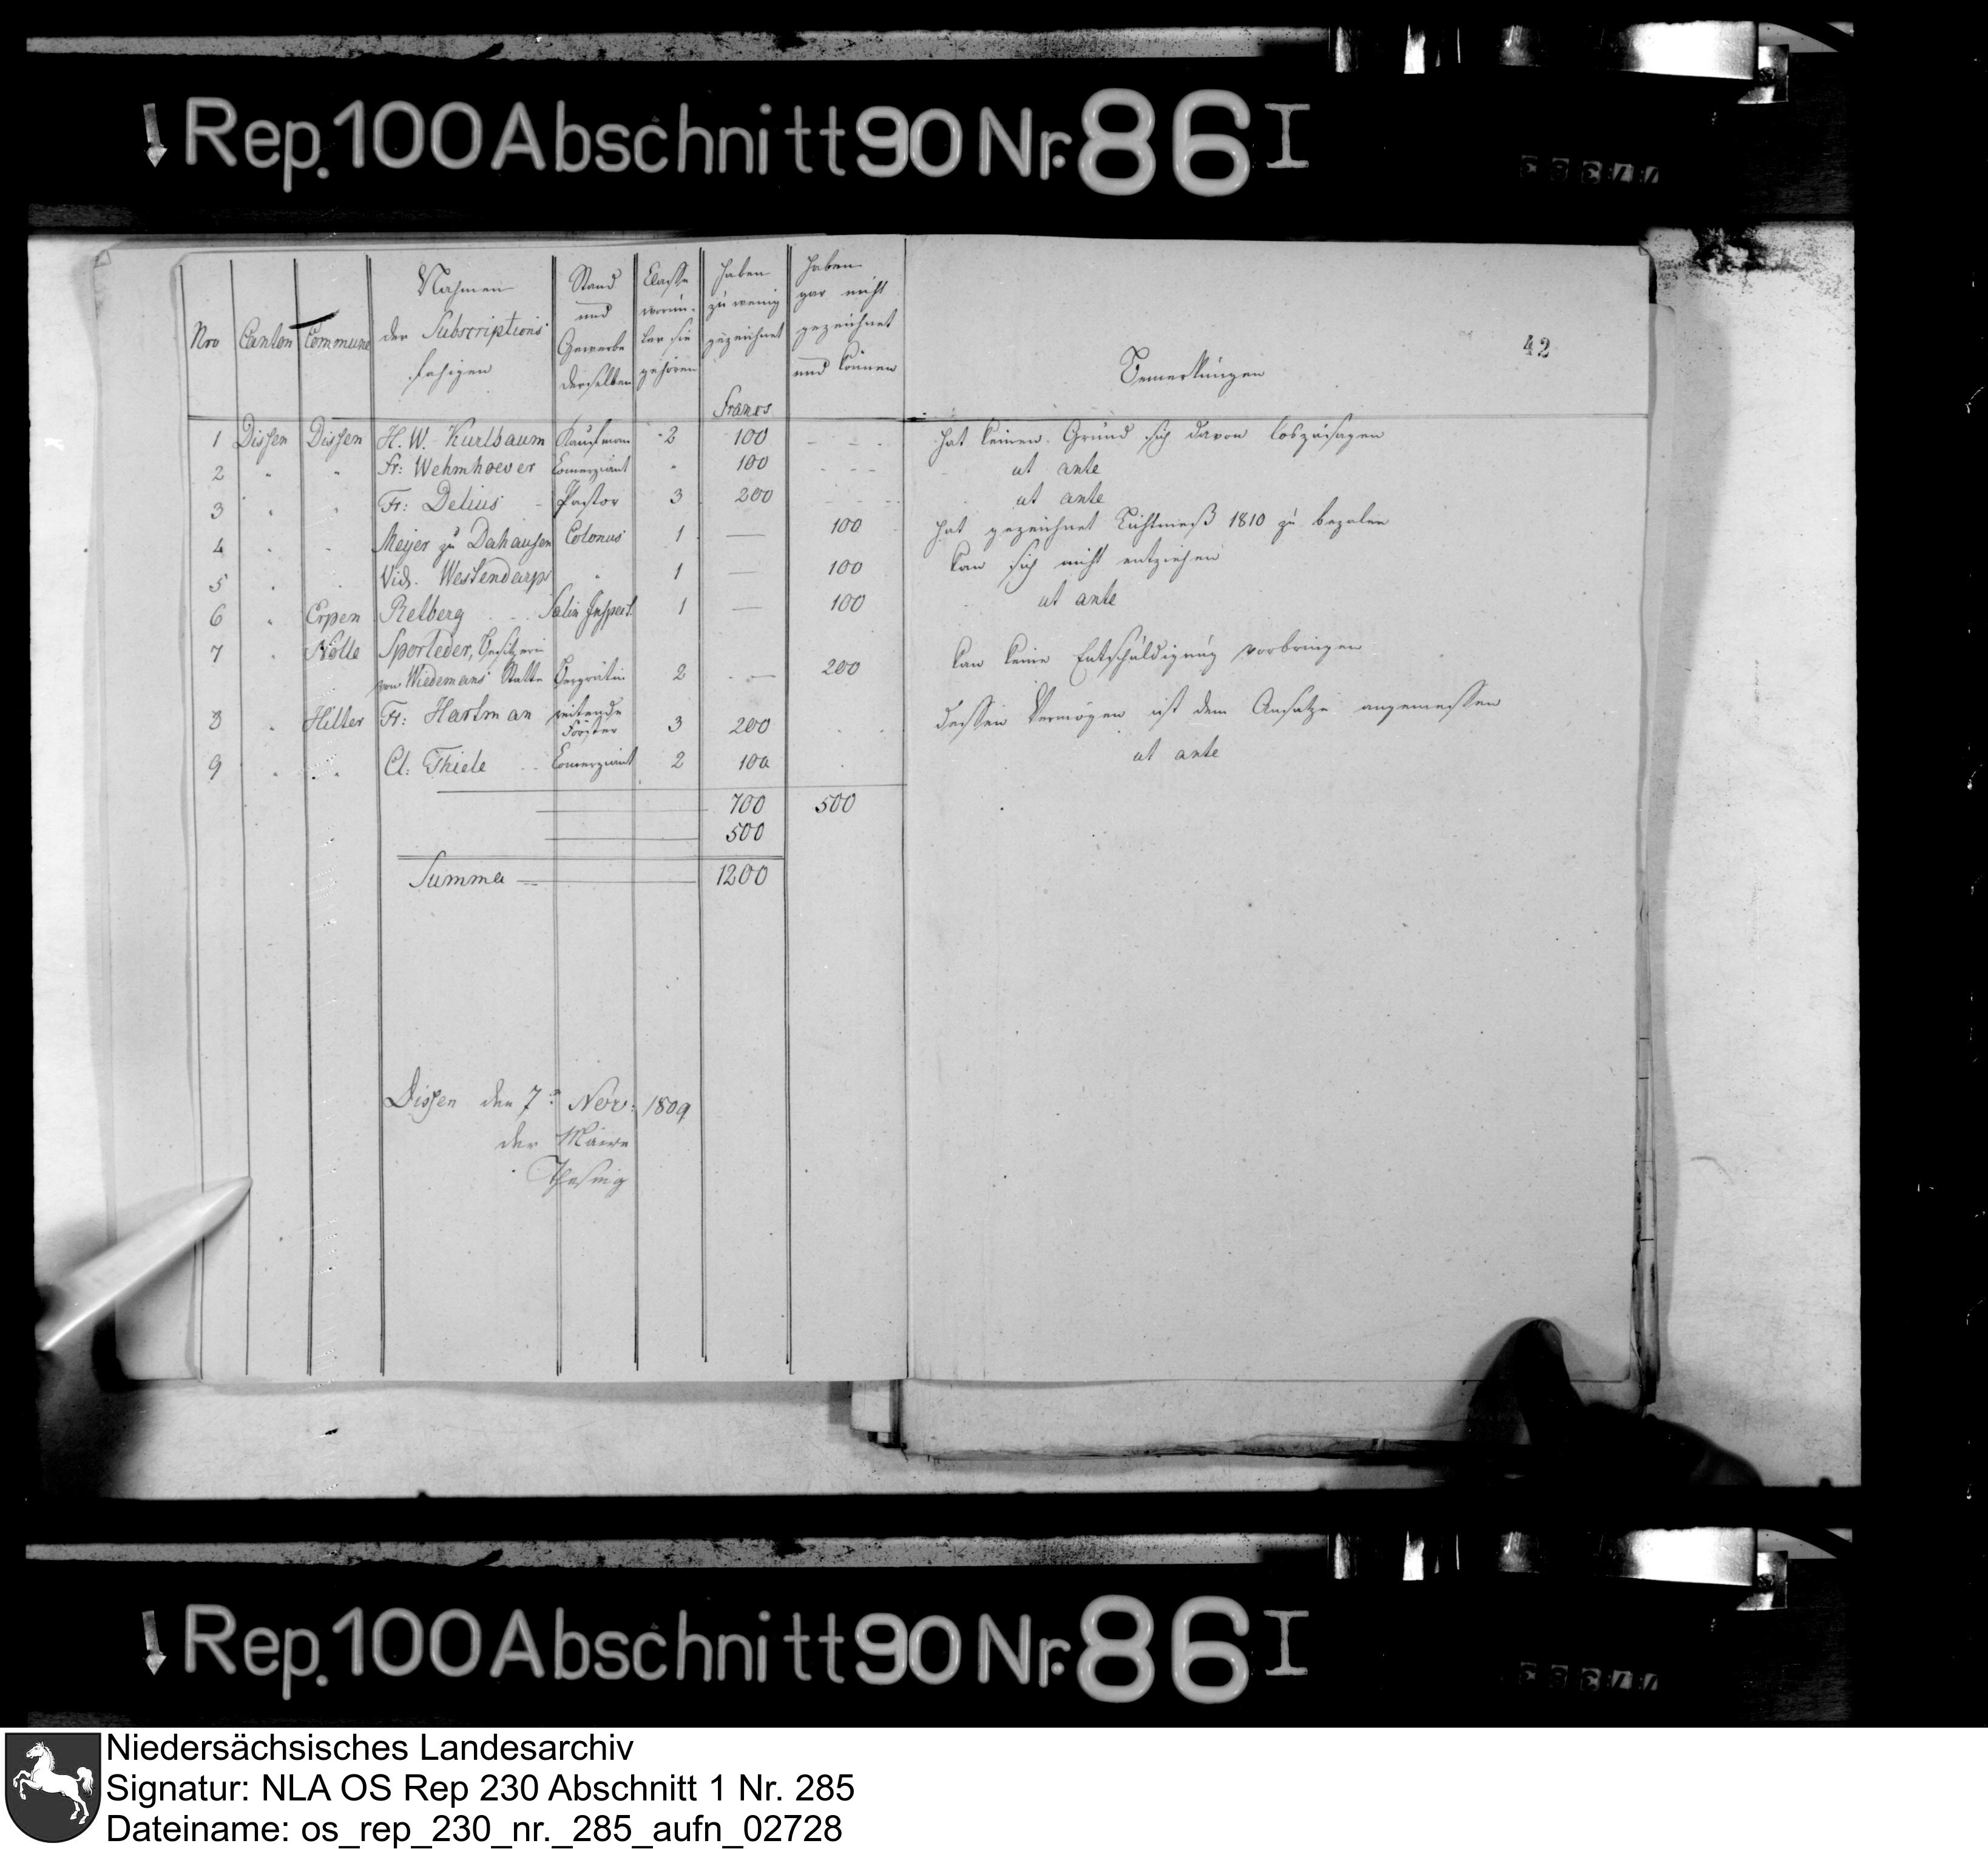 Rep. 100 Abschnitt 90 Nr. 86 I
42
Nro Canton Commune Nahmen der Subscriptions fahigen Stand und Gewerbe derselben Classe worun- ter sie gehören haben zu wenig gezeichnet haben gar nicht gezeichnet und können Bemerkungen
Francs
1 Dissen Dissen H. W. Kurlbaum Kaufman 2 100 - - - hat keinen Grund sich davon loszusagen
2 " " Fr: Wehmhoever Comerziant " 100 - - - ut ante
3 " " Fr: Delius - Pastor 3 200 - - - ut ante
4 " " Meyer zu Dahausen Colonus 1 — 100 hat gezeichnet Lichtmeß 1810 zu bezalen
5 " " Vid. Westendarp " 1 — 100 kan sich nicht entziehen
6 " Erpen Retberg Salin Inspect. 1 — 100 ut ante
7 " Nolle Sporleder, Besitzerin
von Wiedemans Stätte Bergrätin 2 - — 200 kan keine Entschuldigung vorbringen
8 " Hilter Fr: Hartman reitende Förster 3 200 dessen Vermögen ist dem Ansatze angemessen
9 " " Cl: Thiele Comerziant 2 100 ut ante
700 500
500
Summa — 1200
Dissen den 7n Nov: 1809
der Maire
Thesing
Rep. 100 Abschnitt 90 Nr. 86 I
Niedersächsisches Landesarchiv
Signatur: NLA OS Rep 230 Abschnitt 1 Nr. 285
Dateiname: os_rep_230_nr._285_aufn_02728